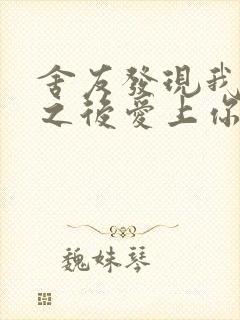 舍友發現我
之後愛上你
魏妹琴